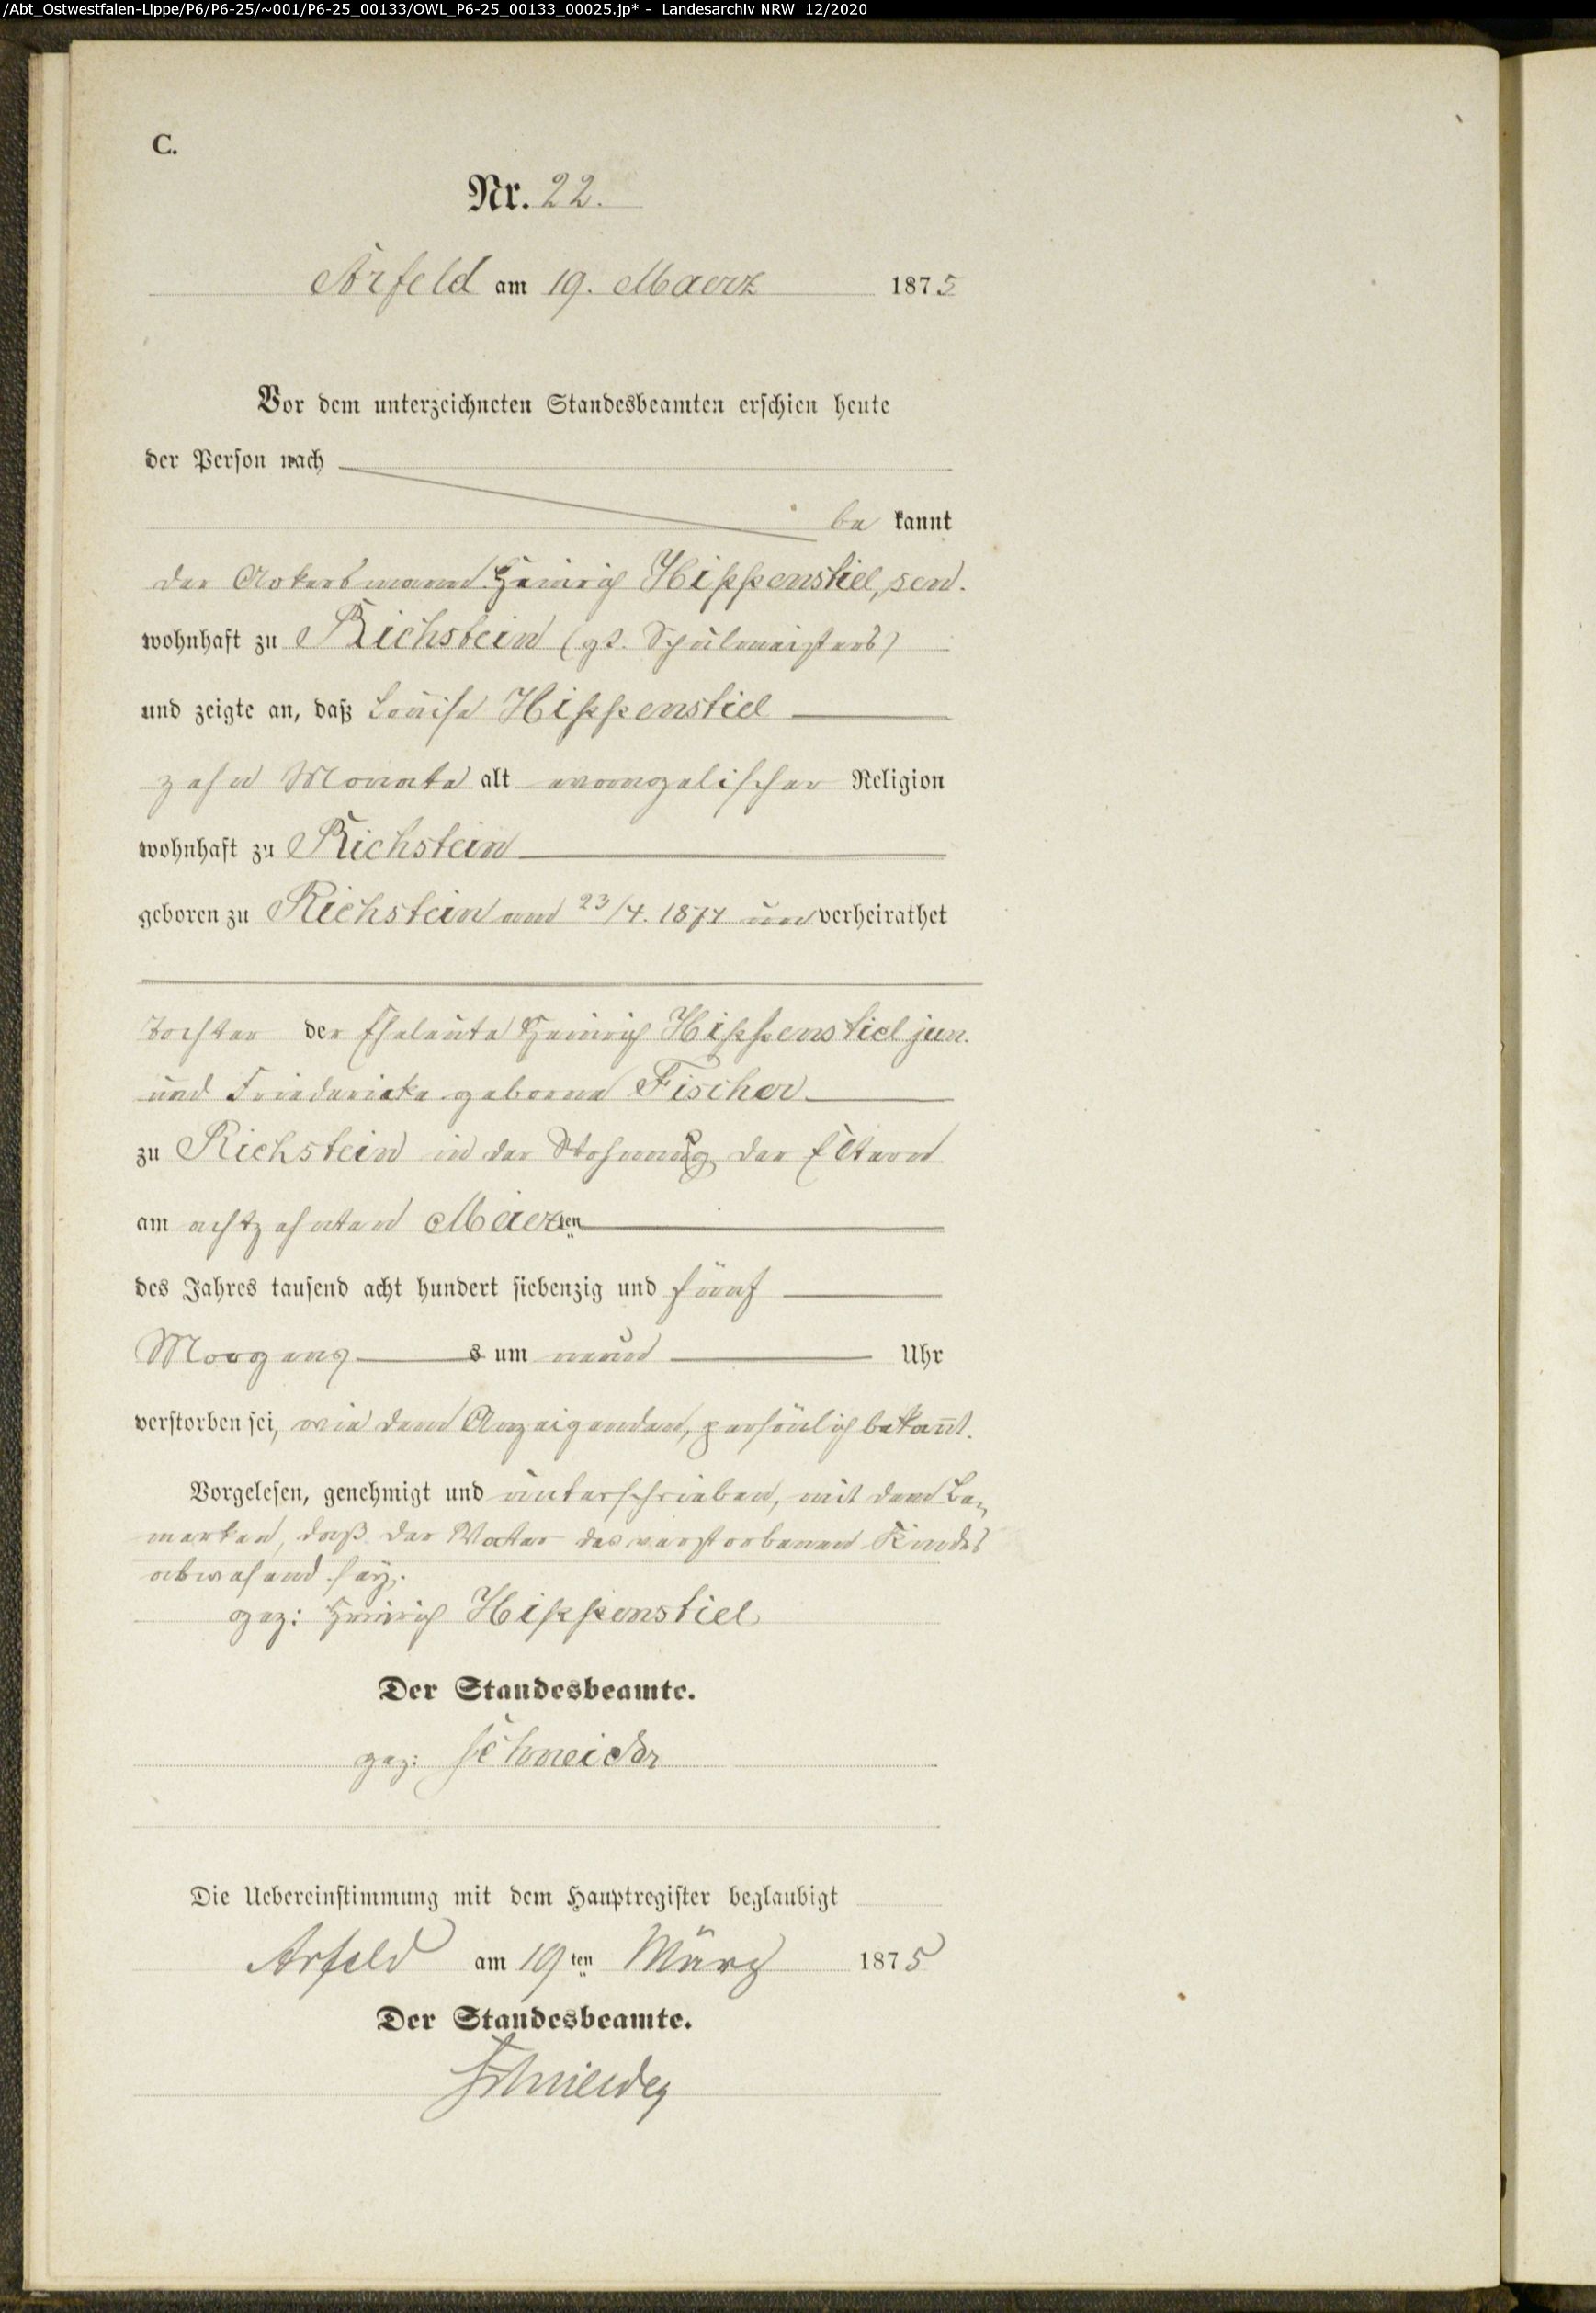 /Abt_Ostwestfalen-Lippe/P6/P6-25/~001/P6-25_00133/OWL_P6-25_00133_00025.jp* - Landesarchiv NRW 12/2020
C.
Nr. 22.
Arfeld am 19. Maerz 1875
Vor dem unterzeichneten Standesbeamten erschien heute
der Person nach
be kannt
der Ackersmann Heinrich Hippenstiel, sen.
wohnhaft zu Richstein (gt. Schulmeisters)
und zeigte an, daß Louise Hippenstiel
zehn Monate alt evangelischer Religion
wohnhaft zu Richstein
geboren zu Richstein am 23/4. 1874 unverheirathet
Tochter der Eheleute Heinrich Hippenstiel jun.
und Friedericke geborne Fischer
zu Richstein in der Wohnung der Eltern
am achtzehnten Maerz ten
des Jahres tausend acht hundert siebenzig und fünf
Morgens s um neun Uhr
verstorben sei, wie dem Anzeigenden, persönlich bekannt.
Vorgelesen, genehmigt und unterschrieben, mit dem Be-
merken, daß der Vater des verstorbenen Kindes
abwesend sey.
gez: Heinrich Hippenstiel
Der Standesbeamte.
gez: Schneider
Die Uebereinstimmung mit dem Hauptregister beglaubigt
Arfeld am 19ten März 1875
Der Standesbeamte.
Schneider